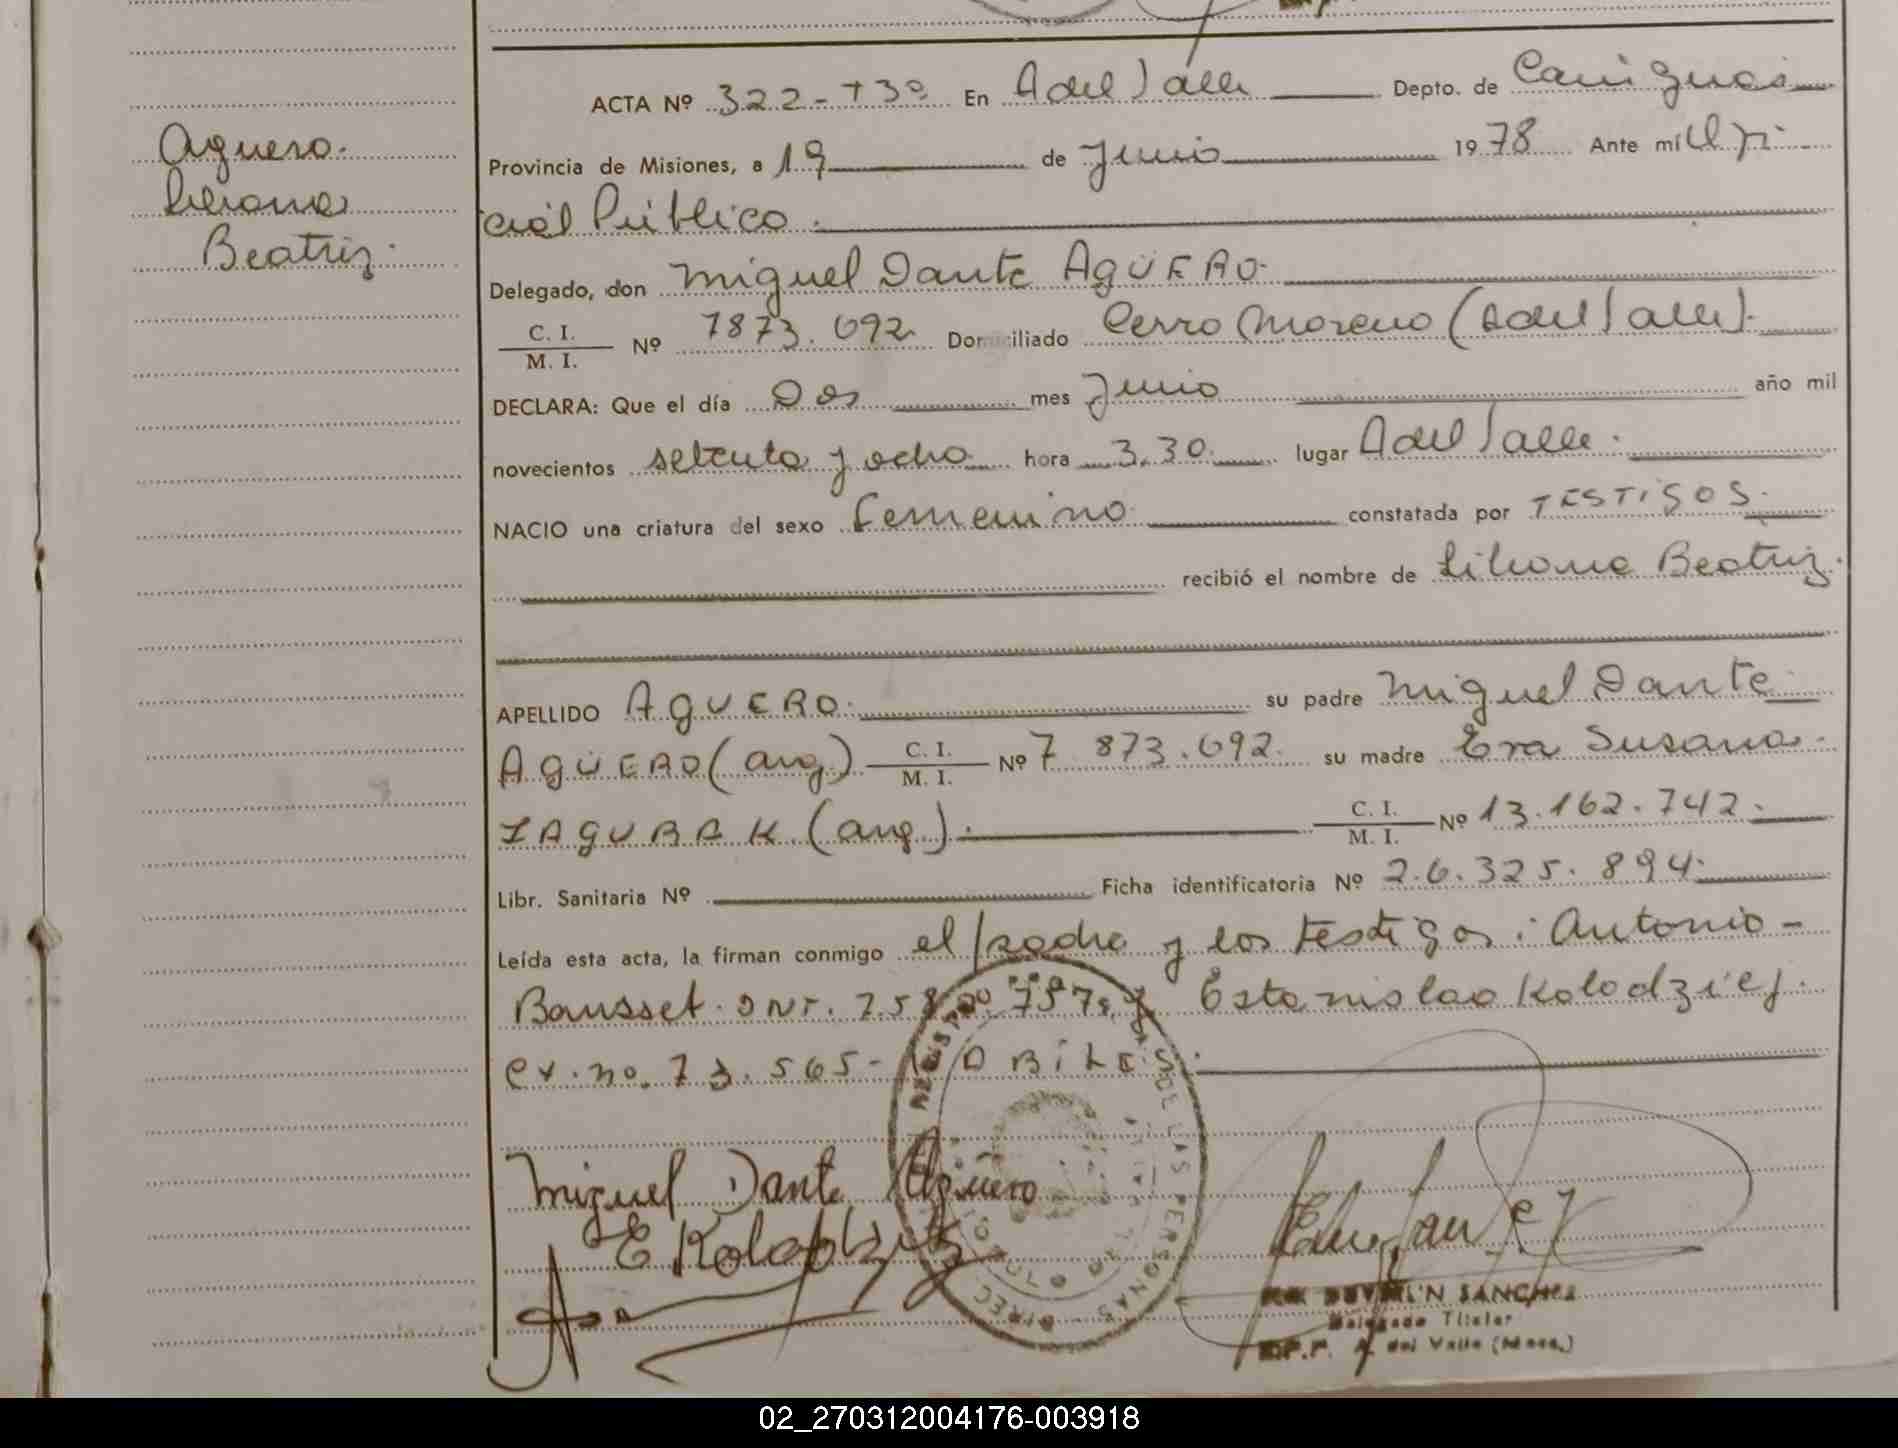 Aguero.
Liliana
Beatriz.
ACTA Nº 322-T3º En A del Valle Depto. de Cainguás
Provincia de Misiones, a 19 de Junio 1978 Ante mí el Ofi
cial Público.
Delegado, don Miguel Dante AGÜERO.
C. I.
M. I. Nº 7873.692 Domiciliado Cerro Moreno (A del Valle).
DECLARA: Que el día Dos mes Junio año mil
novecientos setenta y ocho hora 3.30. lugar A del Valle.
NACIO una criatura del sexo femenino constatada por TESTIGOS.
recibió el nombre de Liliana Beatriz.
APELLIDO AGUERO. su padre Miguel Dante
AGÜERO (arg.) C. I. M. I. Nº 7 873.692. su madre Eva Susana
ZAGUBAK (arg.). C. I. M. I. Nº 13.162.742.
Libr. Sanitaria Nº Ficha identificatoria Nº 26.325.894.
Leída esta acta, la firman conmigo el padre y los testigos: Antonio
Bausset. DNI. y Estanislao Kolodziej.
ex. no. 73.565-
Miguel Dante Agüero
E Kolodziej
SANCHEZ
Delegado Titular
A. del Valle (Mnes.)
REGISTRO DE LAS PERSONAS
02_270312004176-003918